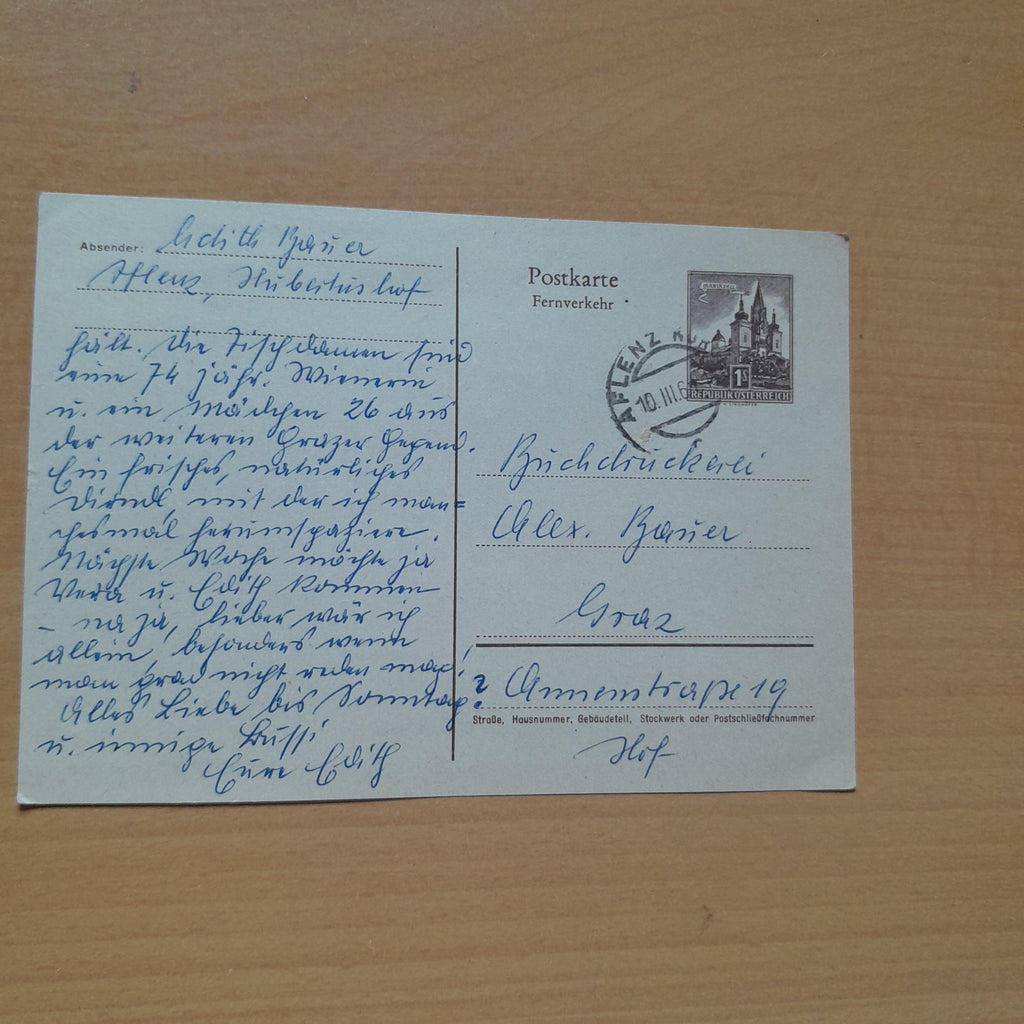 Absender: Edith Bauer
Aflenz, Hubertushof
hält. Die Tischdamen sind
eine 74 jähr. Wienerin
u. ein Mädchen 26 aus
der weiteren Grazer Gegend.
Ein frisches, natürliches
Dirndl, mit der ich man=
chesmal herumspaziere.
Nächste Woche möchte ja
Vera u. Edith kommen
- na ja, lieber wär ich
allein, besonders wenn
man grad nicht reden mag!
Alles Liebe bis Sonntag?
u. innige Bussi
Eure Edith
Postkarte
Fernverkehr
MARIAZELL
1S
REPUBLIK ÖSTERREICH
AFLENZ KURORT
10.III.6
Buchdruckerei
Alex. Bauer
Graz
Annenstraße 19
Straße, Hausnummer, Gebäudeteil, Stockwerk oder Postschließfachnummer
Hof